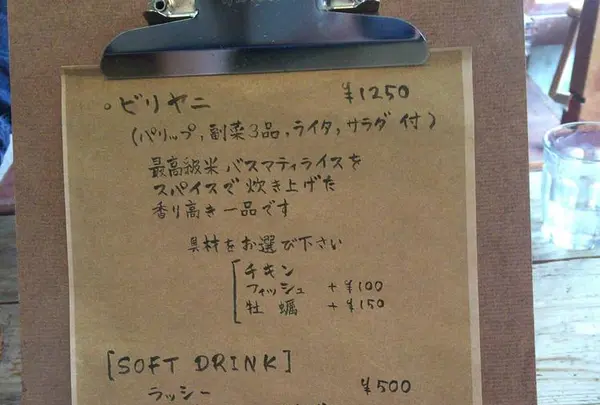 ・ビリヤニ ¥1250
(パリップ, 副菜3品, ライタ, サラダ付)
最高級米バスマティライスを
スパイスで炊き上げた
香り高き一品です
具材をお選び下さい
チキン
フィッシュ +¥100
牡蠣 +¥150
[SOFT DRINK]
ラッシー ¥500